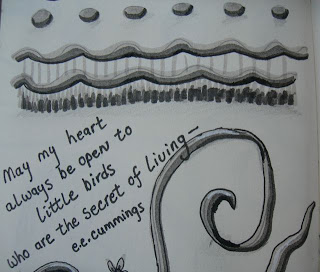 May my heart
always be open to
little birds
who are the secret of Living—
e.e.cummings